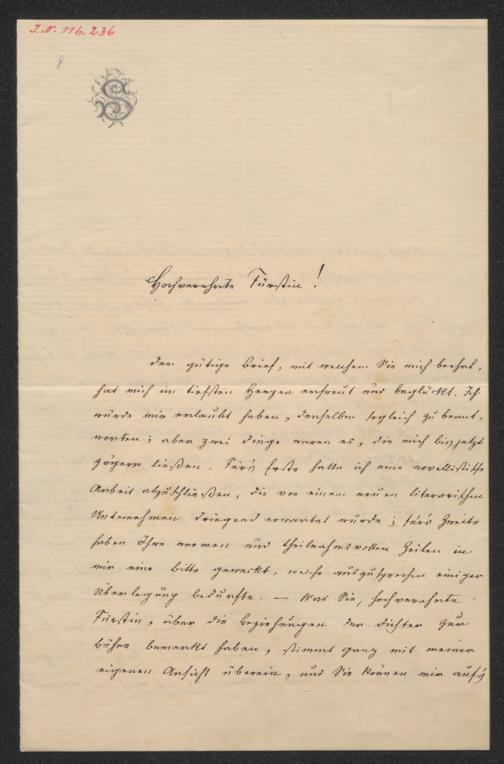 I.N. 116.236
8
S
Hochverehrte Fürstin!
Der gütige Brief, mit welchem Sie mich beehrt,
hat mich im tiefsten Herzen erfreut und beglückt. Ich
würde mir erlaubt haben, denselben sogleich zu beant-
worten; aber zwei Dinge waren es, die mich bis jetzt
zögern ließen. Für's Erste hatte ich eine novellistische
Arbeit abzuschließen, die von einem neuen literarischen
Unternehmen dringend erwartet wurde; für's Zweite
haben Ihre warmen und theilnahmsvollen Zeilen in
mir eine Bitte geweckt, welche auszusprechen einiger
Überlegung bedurfte. — Was Sie, hochverehrte
Fürstin, über die Beziehungen der Dichter zur
Bühne bemerkt haben, stimmt ganz mit meiner
eigenen Ansicht überein, und Sie können mir auf's